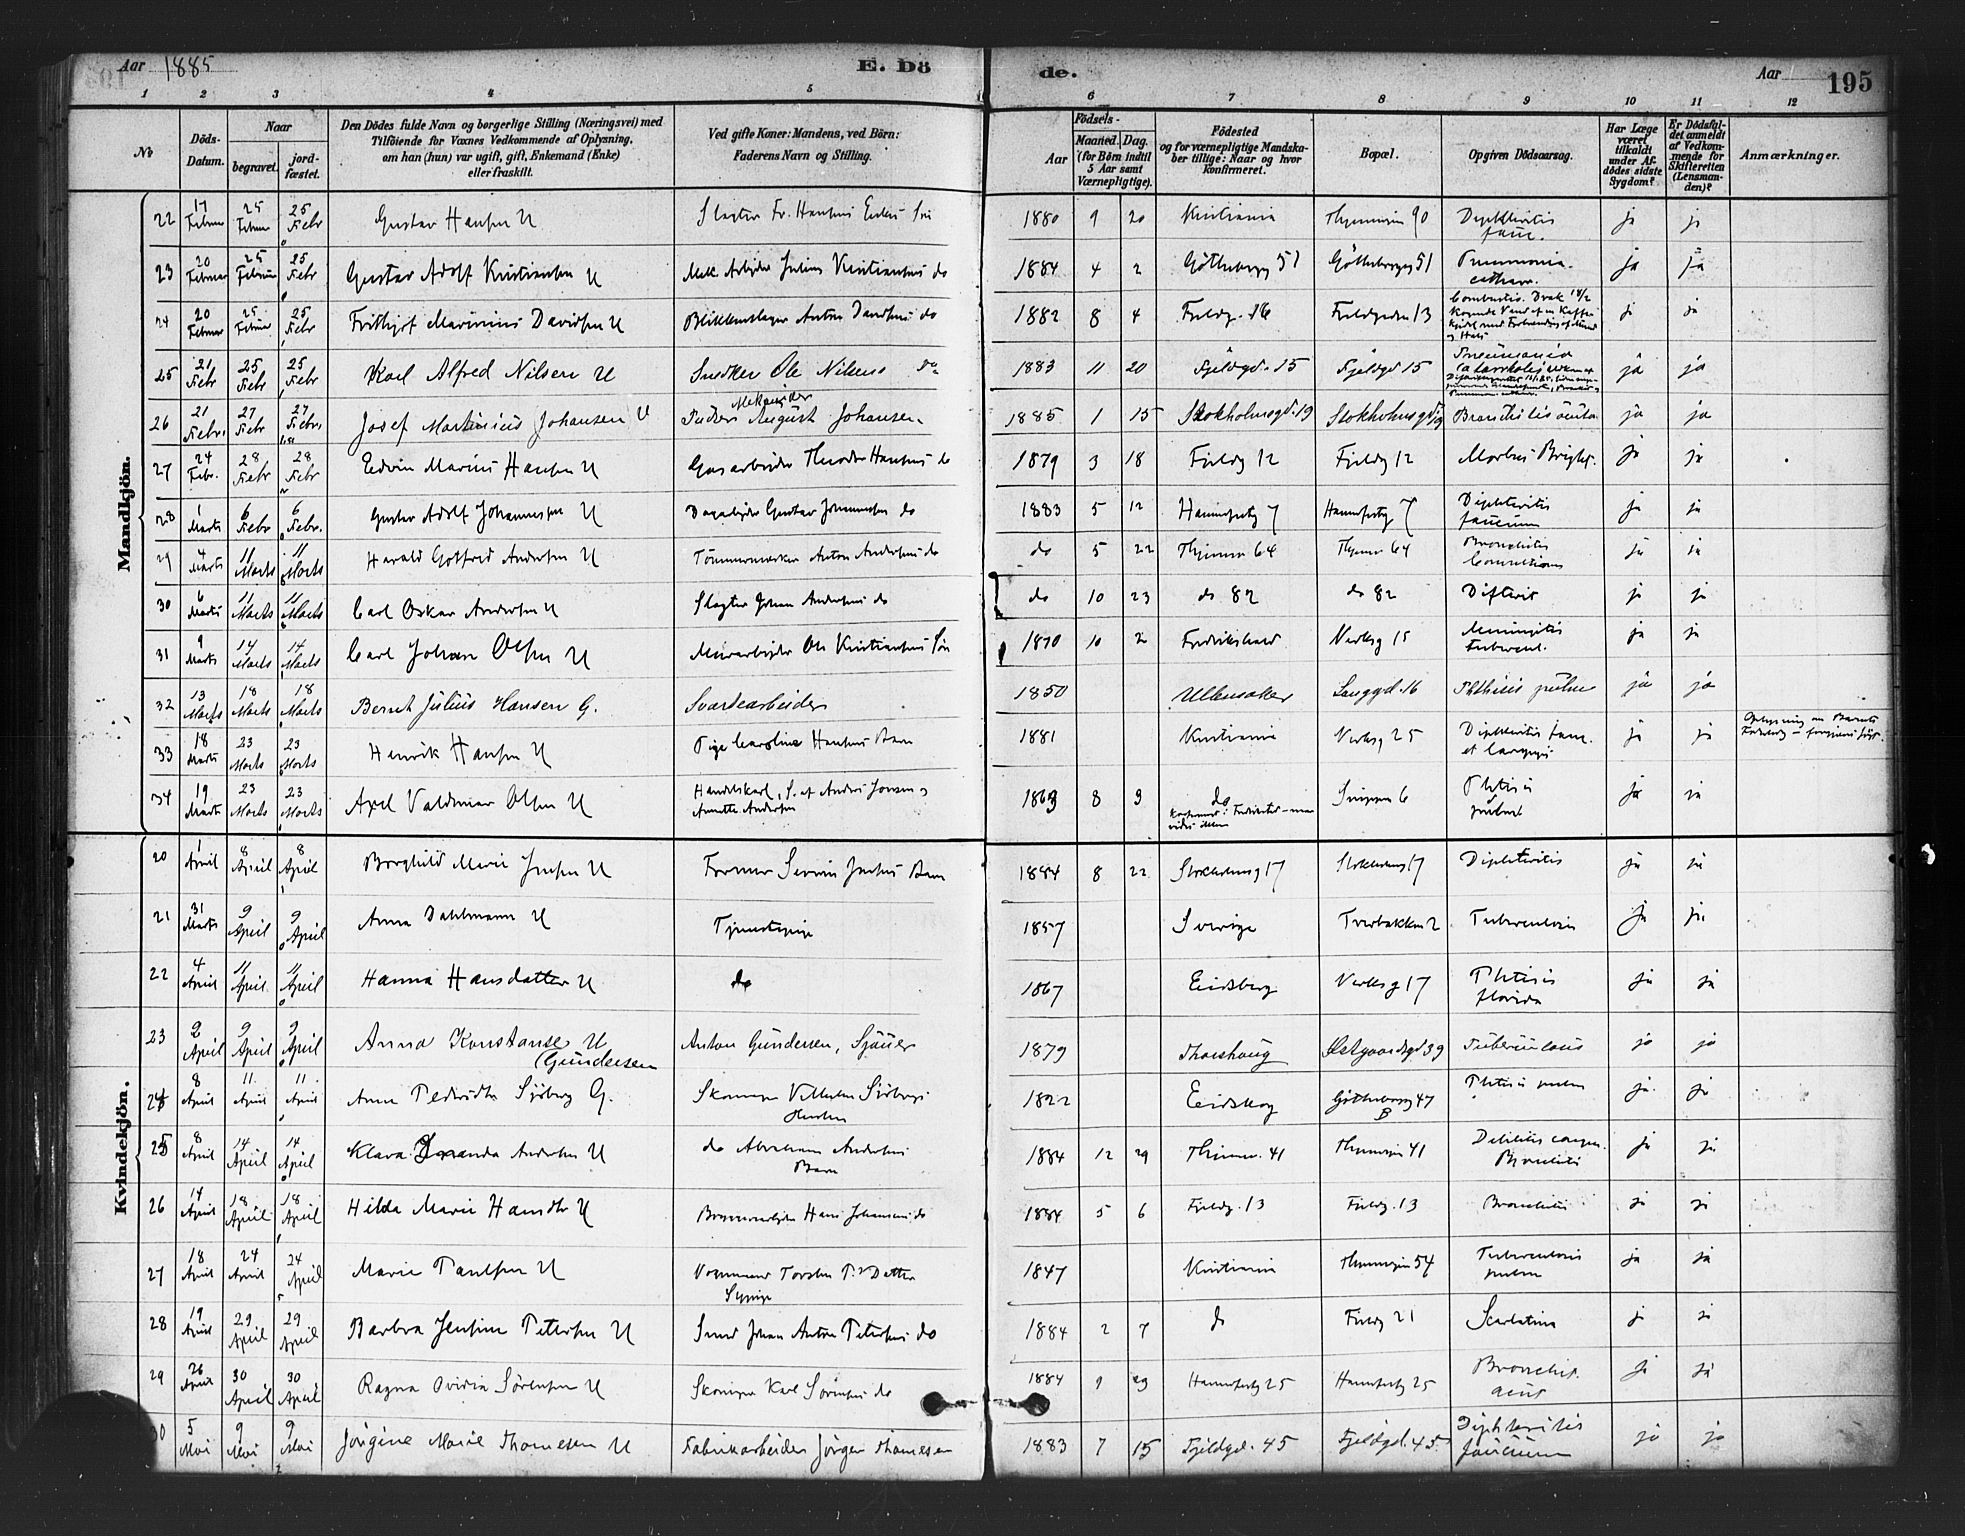 Aar 1885 E. Dö
de. Aar 195
1 2 3 4 5 6 7 8 9 10 11 12
No
Döds-Datum.
Naar
begravet. jord-fæstet.
Den Dödes fulde Navn og borgerlige Stilling (Næringsvei) med
Tilföiende for Voxnes Vedkommende af Oplysning,
om han (hun) var ugift, gift, Enkemand (Enke)
eller fraskilt.
Ved gifte Koner: Mandens, ved Börn:
Faderens Navn og Stilling.
Födsels-
Aar Maaned. Dag.
(for Börn indtil
5 Aar samt
Værnepligtige).
Födested
og for værnepligtige Mandska-
ber tillige: Naar og hvor
konfirmeret.
Bopæl.
Opgiven Dödsaarsag.
Har Læge
været
tilkaldt
under Af-
dödes sidste
Sygdom?
Er Dödsfal-
det anmeldt
af Vedkom-
mende for
Skifteretten
(Lensman-
den)?
Anmærkninger.
Mandkjön.
22 17 Februar 25 Februar 25 Febr Gustav Hansen U Slagter Fr. Hansens 1880 9 20 Kristiania 90 Diphteritis fauc. ja ja
23 20 Februar 25 Februar 25 Febr Gustav Adolf Kristiansen U Mek Arbejder Julius Kristiansens do 1884 4 2 Götheborgg 51 Götheborgsg 51 Pneumonia cathar. ja ja
24 20 Februar 25 Februar 25 Febr Frithjof Marinius Davidsen U Blikkenslager Anton Davidsens do 1882 8 4 Fjeldg. 16 Fjeldgaden 13 Combustio. Drak 14/2 kogende Vand af en Kaffe kjedel med Forbrænding af Mund og Hals ja ja
25 21 Febr 25 Febr 25 Febr Karl Alfred Nilsen U Snedker Ole Nilsens do 1883 11 20 Fjeldgd. 15 Fjeldgd 15 Pneumonia ja ja
26 21 Febr. 27 Febr 27 Febr. Josef Martinius Johansen U August Johansen 1885 1 15 Stokholmsgd. 19 Stokholmsgd. 19 Bronchitis acuta ja ja
27 24 Febr. 28 Febr 28 Febr Edvin Marius Hansen U Gasarbeider Theodor Hansens do 1879 3 18 Fjeldg 12 Fjeldg 12 Morbus Bright. ja ja
28 1 Marts 6 Febr 6 Febr. Gustav Adolf Johannesen U Gustav Johannesens do 1883 5 12 Hammerfestg 7 Hammerfestg 7 Diphteritis faucium ja ja
29 4 Marts 11 Marts 11 Marts Harald Gotfred Andersen U Tömmermerker Anton Andersens do do 5 22 64 64 Bronchitis Convulsions ja ja
30 6 Marts 11 Marts 11 Marts Carl Oskar Andersen U Slagter Johan Andersens do do 10 23 do 82 do 82 Difterit ja ja
31 9 Marts 14 Marts 14 Marts Carl Johan Olsen U Murarbejder Ole Kristiansens Sön 1870 10 2 Fredrikshald Verksg 15 Meningitis tubercul. ja ja
32 13 Marts 18 Marts 18 Marts Bernt Julius Hansen G. 1850 Ullensaker 16 Phthisis pulm ja ja
33 18 Marts 23 Marts 23 Marts Henrik Hansen U Pige Caroline Hansens Barn 1881 Kristiania Verksg 25 Diphteritis fauc. et laryngis ja ja
34 19 Marts 23 Marts 23 Marts Axel Valdemar Olsen U Handelskarl, S. af Anders Jonsen og Annette Andersen 1863 8 9 do 6 Phtisis pulm ja ja
Kvindekjön.
20 1 April 8 April 8 April Borghild Marie Jensen U Former Severin Jensens Barn 1884 8 22 Stokholmsg 17 Stokholmsg 17 Diphteritis ja ja
21 31 Marts 9 April 9 April Anna Dahlmann U Tjenestepige 1857 Sverige Tverbakken 2 Tuberculosis ja ja
22 4 April 11 April 11 April Hanna Hansdatter U do 1867 Eidsberg Verksg 17 Phtisis florida ja ja
23 2 April 9 April 9 April Anna Konstanse U (Gundersen Anton Gundersen, Sjauer 1879 Thorshaug Østgaardsgd 39 Tuberculosis ja ja
24 8 April 11 April 11 April Anna Sjöberg G. Skomager Vilhelm Sjöbergs Hustru 1822 Eidskog Götheborgg 47 B Phtisis pulm ja ja
25 8 April 14 April 14 April Klara Andersen U do Abraham Andersens Barn 1884 12 29 41 41 Debilitas congen. Bronchitis ja ja
26 14 April 18 April 18 April Hilda Marie Hansdtr U Hans Johansens do 1884 5 6 Fjeldg. 13 Fjeldg. 13 Bronchitis ja ja
27 18 April 24 April 24 April Marie Paulsen U Torsten P.s Datter Sypige 1847 Kristiania 54 Tuberculosis pulm ja ja
28 19 April 29 April 29 April Barbra Jensine Petersen U Smed Johan Anton Petersens do 1884 2 7 do Fjeldg 21 Scarlatina ja ja
29 26 April 30 April 30 April Ragna Ovidia Sörensen U Skomager Karl Sörensens do 1884 9 29 Hammerfestg 25 Hammerfestg 25 Bronchit. acut ja ja
30 5 Mai 9 Mai 9 Mai Jörgine Marie Thomesen U Fabrikarbeider Jörgen Thomesen 1883 7 15 Fjeldgd. 45 Fjeldgd. 45 Diphteritis faucium ja ja